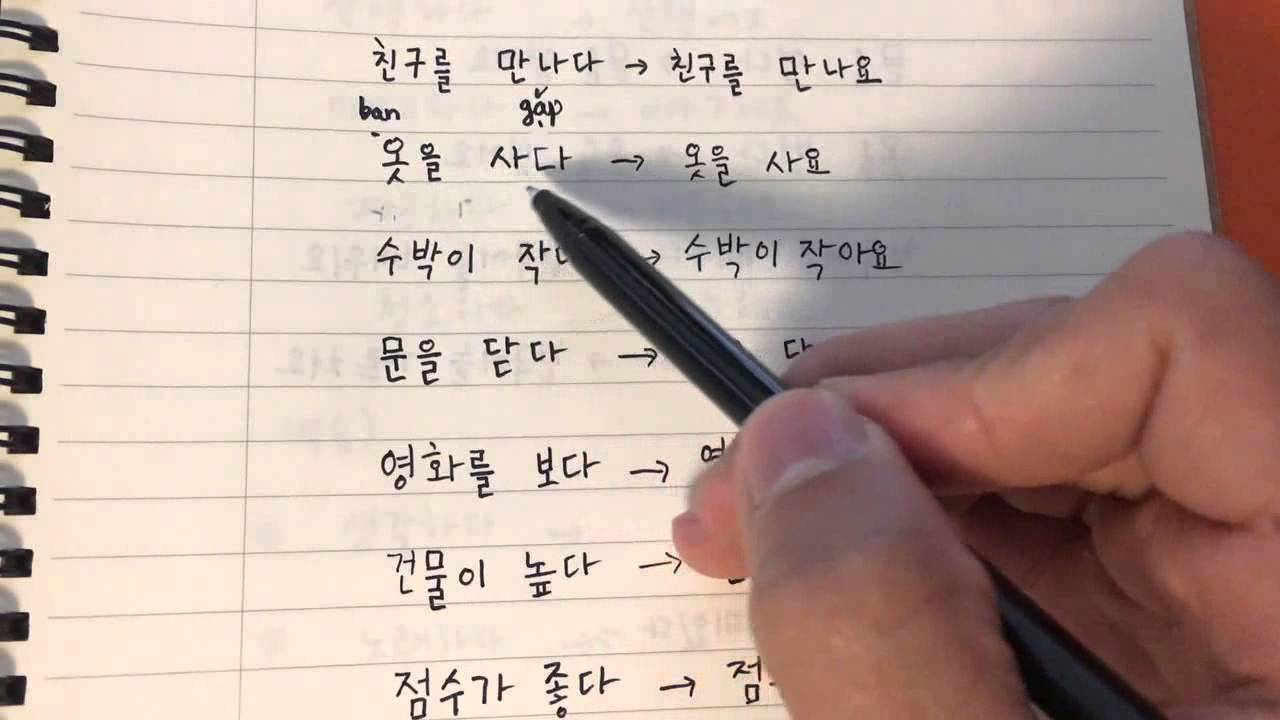 친구를 만나다 → 친구를 만나요
ban gặp
옷을 사다 → 옷을 사요
수박이 → 수박이 작아요
문을 닫다 →
영화를 보다 →
건물이 높다 →
점수가 좋다 →